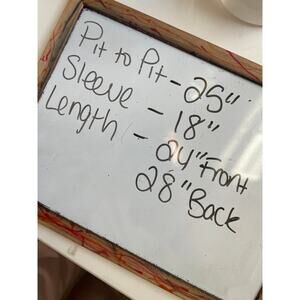 Pit to Pit - 25"
Sleeve - 18"
Length - 24" Front
28" Back